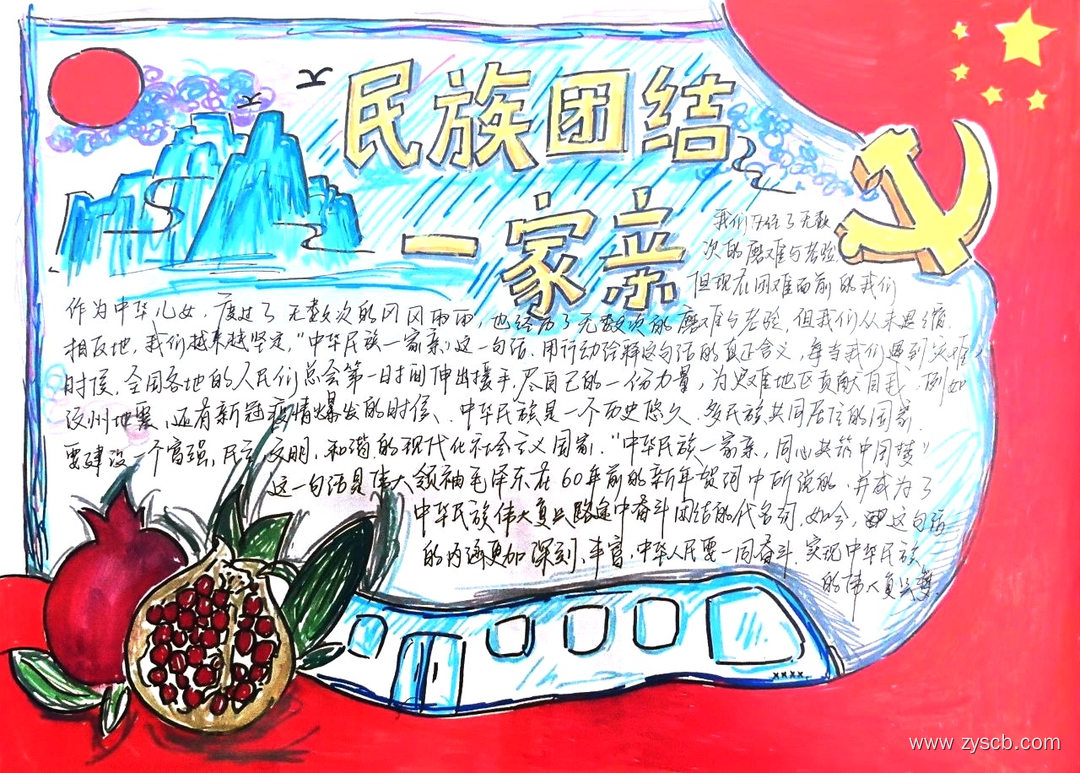 民族团结
一家亲
我们历经了无数
次的磨难与考验
但现在困难面前的我们
作为中华儿女，度过了无数次的风风雨雨，也经历了无数次的磨难与考验，但我们从未退缩，
相反地，我们越来越坚定，“中华民族一家亲”这一句话，用行动诠释这句话的真正含义，每当我们遇到灾难
时候，全国各地的人民们总会第一时间伸出援手，尽自己的一份力量，为灾难地区贡献自我，例如
汶州地震、还有新冠疫情爆发的时候、中华民族是一个历史悠久、多民族共同居住的国家，
要建设一个富强，民主，文明，和谐的现代化社会主义国家，“中华民族一家亲，同心共筑中国梦”
这一句话是伟大领袖毛泽东在60年前的新年贺词中所说的，并成为了
中华民族伟大复兴路途中奋斗团结的代名词，如今，这句话
的内涵更加深刻、丰富，中华人民要一同奋斗，实现中华民族
的伟大复兴梦
xxxx
www.zyscb.com